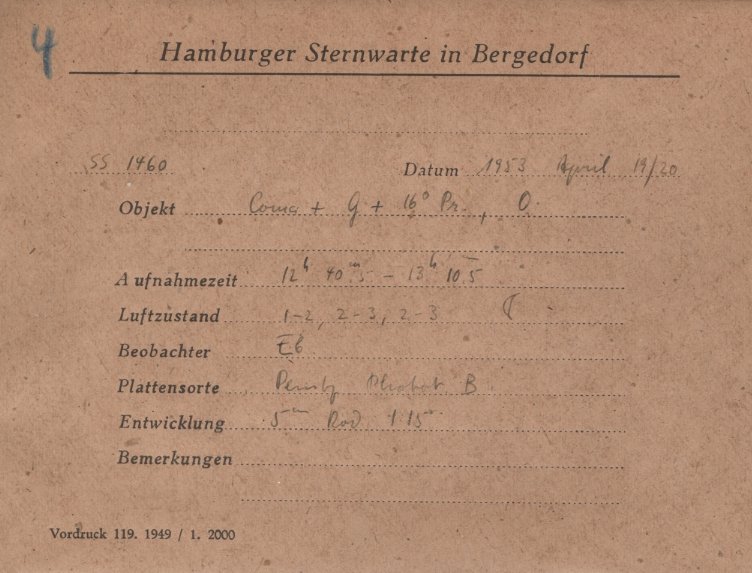 4
Hamburger Sternwarte in Bergedorf
SS 1460 Datum 1953 April 19/20
Objekt Coma + G + 16° Pr., O.
Aufnahmezeit 12h 40m.5 - 13h 10.5
Luftzustand 1-2, 2-3, 2-3
Beobachter
Plattensorte B
Entwicklung 5m Rod 1:15
Bemerkungen
Vordruck 119. 1949 / 1. 2000